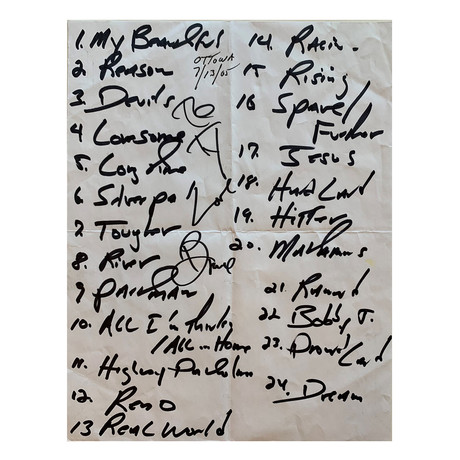 1. My Beautiful
2. Reason
OTTOWA
7/13/05
3. Devils
4 Lonesome
5. Long Time
6 Silver pa
7. Tougher
8. River
9 Part man
10. ALL I'm thinkin
/ALL in Home
11. Highway Patrolman
12. Reno
13 Real World
14. Racin.
15 Rising
16 Spare
Further
17. Jesus
18. Hard Land
19. Hitter
20. Matamoros
21. Runaround
22. Bobby J.
23. Promised Land
24. Dream